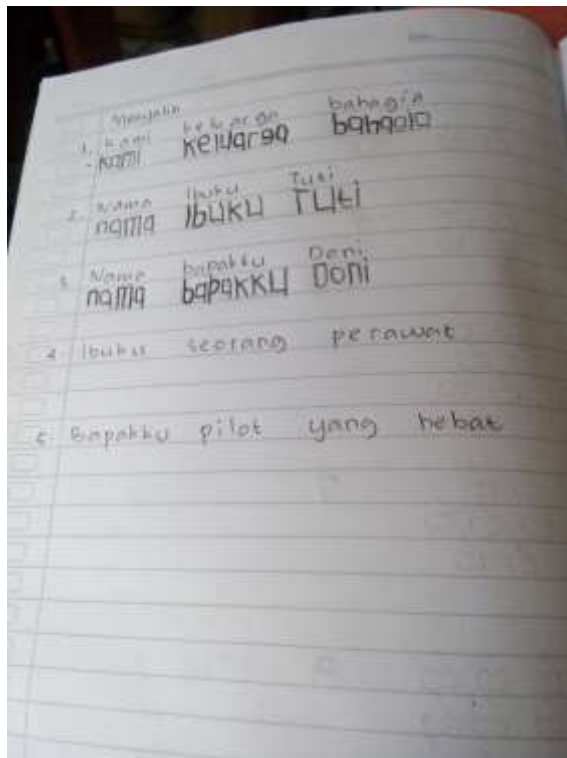 Menyalin
1. Kami keluarga bahagia
- kami keluarga bahgaia
2. Nama ibuku Tuti
nama ibuku Tuti
3. Nama bapakku Doni
nama bapakku Doni
4. Ibuku seorang perawat
5. Bapakku pilot yang hebat